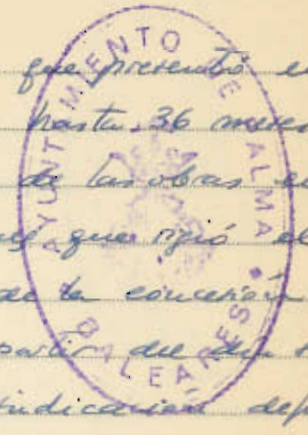 que presentó e
hasta 36 meses
de las obras e
que rigió el
de la concesión
partir del día
indicación def
AYUNTAMIENTO DE PALMA
BALEARES